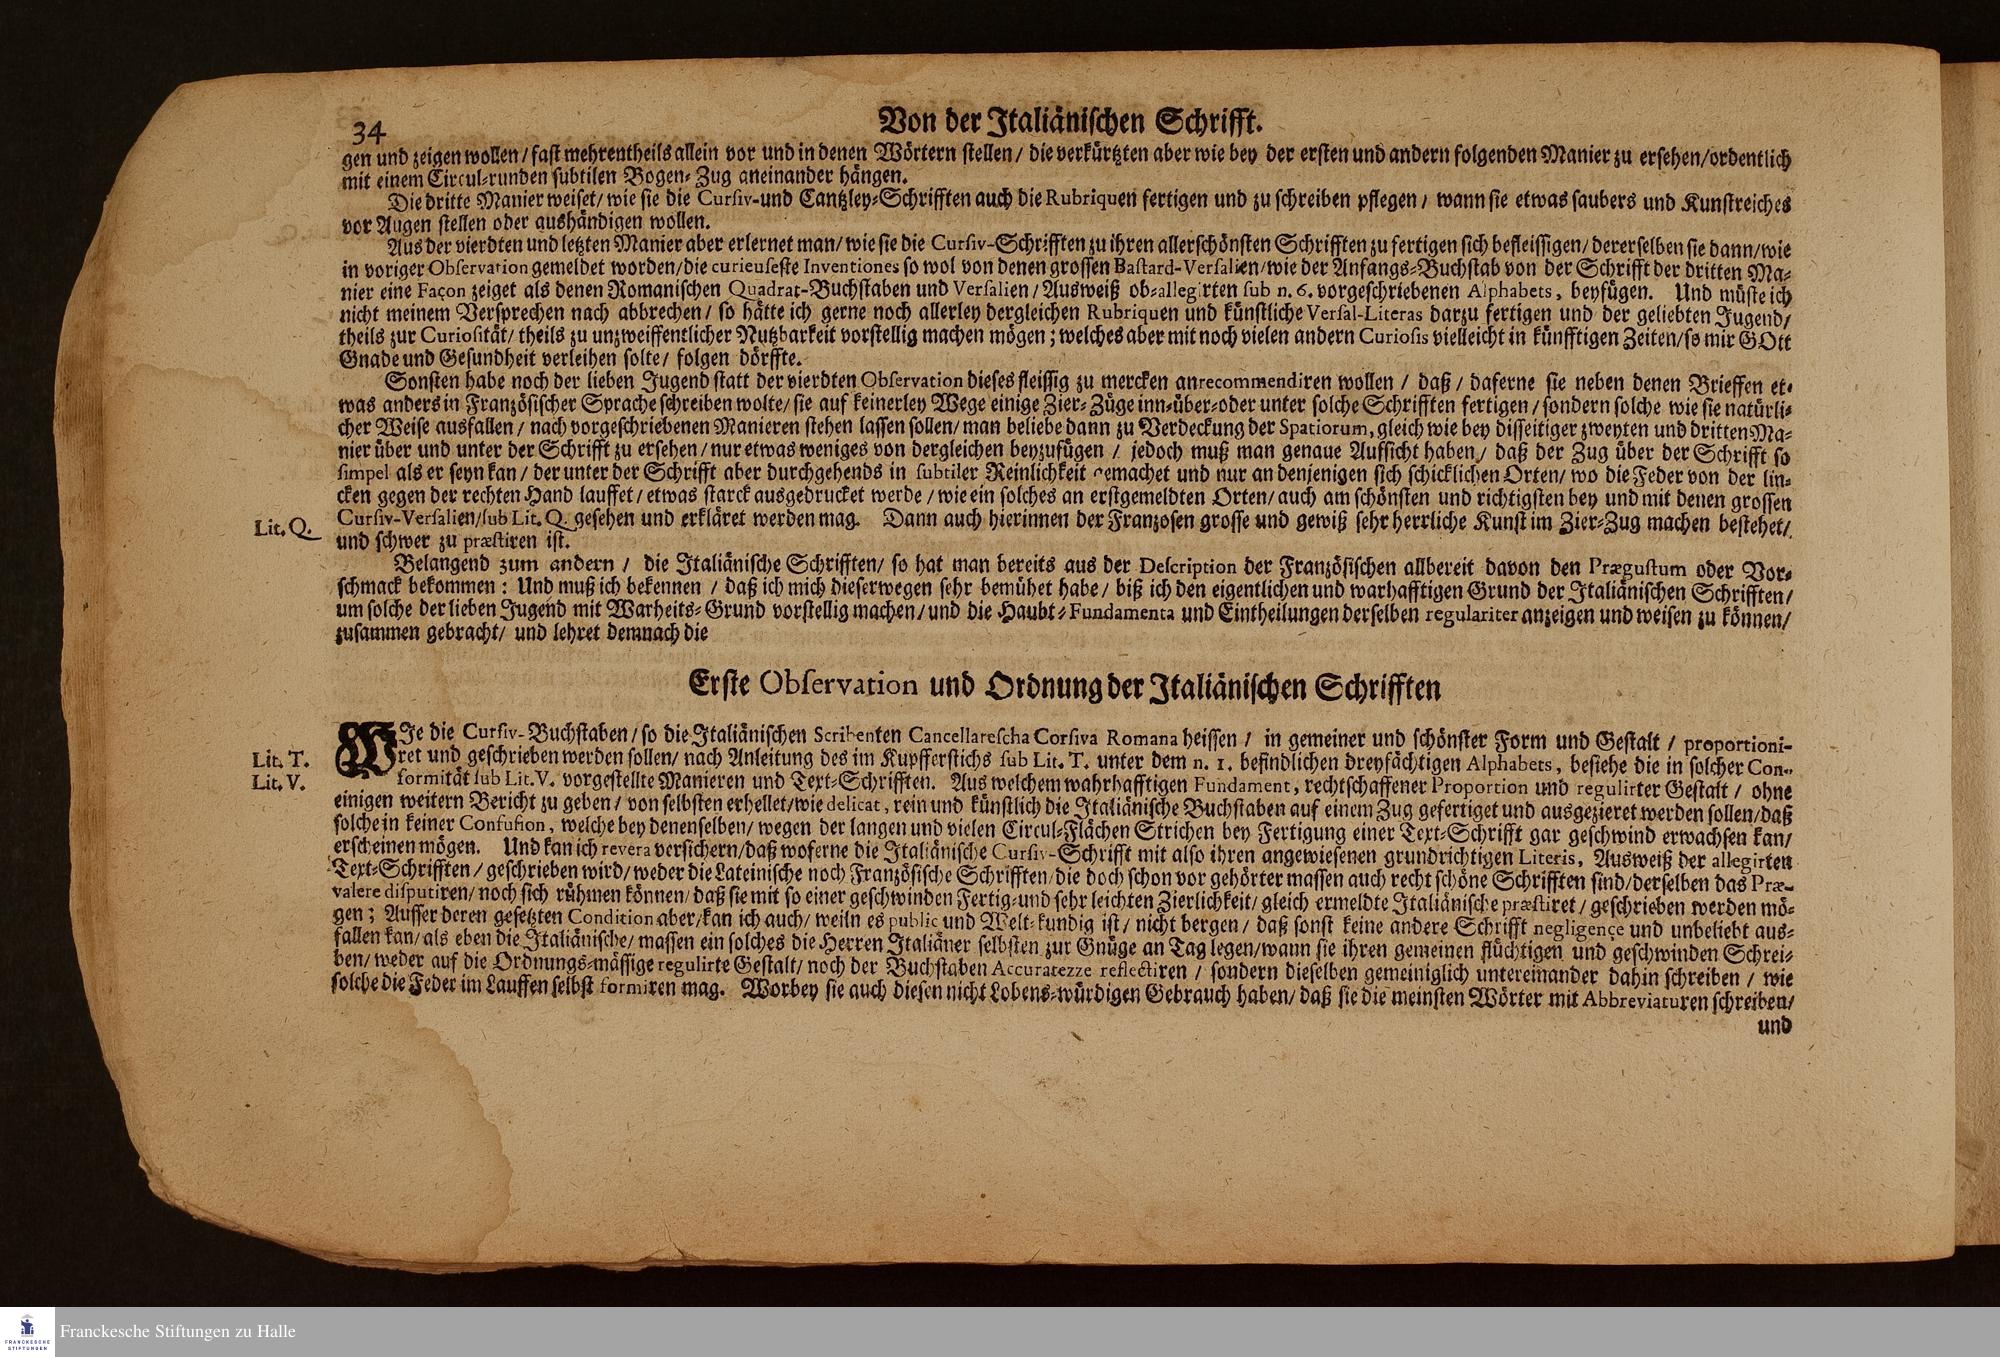 34
Von der Italiänischen Schrifft.
gen und zeigen wollen/ fast mehrentheils allein vor und in denen Wörtern stellen/ die verkürtzten aber wie bey der ersten und andern folgenden Manier zu ersehen/ordentlich
mit einem Circul-runden subtilen Bogen-Zug aneinander hängen.
Die dritte Manier weiset/ wie sie die Cursiv-und Cantzley-Schrifften auch die Rubriquen fertigen und zu schreiben pflegen/ wann sie etwas saubers und Kunstreiches
vor Augen stellen oder aushändigen wollen.
Aus der vierdten und letzten Manier aber erlernet man/ wie sie die Cursiv-Schrifften zu ihren allerschönsten Schrifften zu fertigen sich befleissigen/ dererselben sie dann/wie
in voriger Observation gemeldet worden/die curieuseste Inventiones so wol von denen grossen Bastard-Versalien/wie der Anfangs-Buchstab von der Schrifft der dritten Ma-
nier eine Façon zeiget als denen Romanischen Quadrat-Buchstaben und Versalien/ Ausweiß ob-allegirten sub n. 6. vorgeschriebenen Alphabets, beyfügen. Und müste ich
nicht meinem Versprechen nach abbrechen/ so hätte ich gerne noch allerley dergleichen Rubriquen und künstliche Versal-Literas darzu fertigen und der geliebten Jugend/
theils zur Curiosität/ theils zu unzweiffentlicher Nutzbarkeit vorstellig machen mögen; welches aber mit noch vielen andern Curiosis vielleicht in künfftigen Zeiten/so mir GOtt
Gnade und Gesundheit verleihen solte/ folgen dörffte.
Sonsten habe noch der lieben Jugend statt der vierdten Observation dieses fleissig zu mercken anrecommendiren wollen / daß/ daferne sie neben denen Brieffen et-
was anders in Französischer Sprache schreiben wolte/ sie auf keinerley Wege einige Zier-Züge inn-über-oder unter solche Schrifften fertigen/ sondern solche wie sie natürli-
cher Weise ausfallen/ nach vorgeschriebenen Manieren stehen lassen sollen/ man beliebe dann zu Verdeckung der Spatiorum, gleich wie bey disseitiger zweyten und dritten Ma-
nier über und unter der Schrifft zu ersehen/ nur etwas weniges von dergleichen beyzufügen / jedoch muß man genaue Aufsicht haben/ daß der Zug über der Schrifft so
simpel als er seyn kan/ der unter der Schrifft aber durchgehends in subtiler Reinlichkeit gemachet und nur an denjenigen sich schicklichen Orten/ wo die Feder von der lin-
cken gegen der rechten Hand lauffet/ etwas starck ausgedrucket werde / wie ein solches an erstgemeldten Orten/ auch am schönsten und richtigsten bey und mit denen grossen
Lit. Q.
Cursiv-Versalien/sub Lit. Q. gesehen und erkläret werden mag. Dann auch hierinnen der Franzosen grosse und gewiß sehr herrliche Kunst im Zier-Zug machen bestehet/
und schwer zu præstiren ist.
Belangend zum andern / die Italiänische Schrifften/ so hat man bereits aus der Description der Französischen allbereit davon den Prægustum oder Vor-
schmack bekommen: Und muß ich bekennen / daß ich mich dieserwegen sehr bemühet habe/ biß ich den eigentlichen und warhafftigen Grund der Italiänischen Schrifften/
um solche der lieben Jugend mit Warheits-Grund vorstellig machen/ und die Haubt-Fundamenta und Eintheilungen derselben regulariter anzeigen und weisen zu können/
zusammen gebracht/ und lehret demnach die
Erste Observation und Ordnung der Italiänischen Schrifften
WIe die Cursiv-Buchstaben/ so die Italiänischen Scribenten Cancellarescha Corsiva Romana heissen / in gemeiner und schönster Form und Gestalt / proportioni-
Lit. T.
ret und geschrieben werden sollen/ nach Anleitung des im Kupfferstichs sub Lit. T. unter dem n. 1. befindlichen dreyfächtigen Alphabets, bestehe die in solcher Con-
Lit. V.
formität sub Lit. V. vorgestellte Manieren und Text-Schrifften. Aus welchem wahrhafftigen Fundament, rechtschaffener Proportion und regulirter Gestalt / ohne
einigen weitern Bericht zu geben/ von selbsten erhellet/wie delicat, rein und künstlich die Italiänische Buchstaben auf einem Zug gefertiget und ausgezieret werden sollen/daß
solche in keiner Confusion, welche bey denenselben/ wegen der langen und vielen Circul-Flächen Strichen bey Fertigung einer Text-Schrifft gar geschwind erwachsen kan/
erscheinen mögen. Und kan ich revera versichern/daß woferne die Italiänische Cursiv-Schrifft mit also ihren angewiesenen grundrichtigen Literis, Ausweiß der allegirten
Text-Schrifften/ geschrieben wird/ weder die Lateinische noch Französische Schrifften/die doch schon vor gehörter massen auch recht schöne Schrifften sind/derselben das Præ-
valere disputiren/ noch sich rühmen können/ daß sie mit so einer geschwinden Fertig-und sehr leichten Zierlichkeit/ gleich ermeldte Italiänische præstiret/ geschrieben werden mö-
gen; Ausser deren gesetzten Condition aber/kan ich auch/ weiln es public und Welt-kundig ist/ nicht bergen/ daß sonst keine andere Schrifft negligençe und unbeliebt aus-
fallen kan/ als eben die Italiänische/ massen ein solches die Herren Italiäner selbsten zur Gnüge an Tag legen/wann sie ihren gemeinen flüchtigen und geschwinden Schrei-
ben/ weder auf die Ordnungs-mässige regulirte Gestalt/ noch der Buchstaben Accuratezze reflectiren / sondern dieselben gemeiniglich untereinander dahin schreiben / wie
solche die Feder im Lauffen selbst formiren mag. Worbey sie auch diesen nicht Lobens-würdigen Gebrauch haben/ daß sie die meinsten Wörter mit Abbreviaturen schreiben/
und
FRANCKESCHE
STIFTUNGEN
Franckesche Stiftungen zu Halle